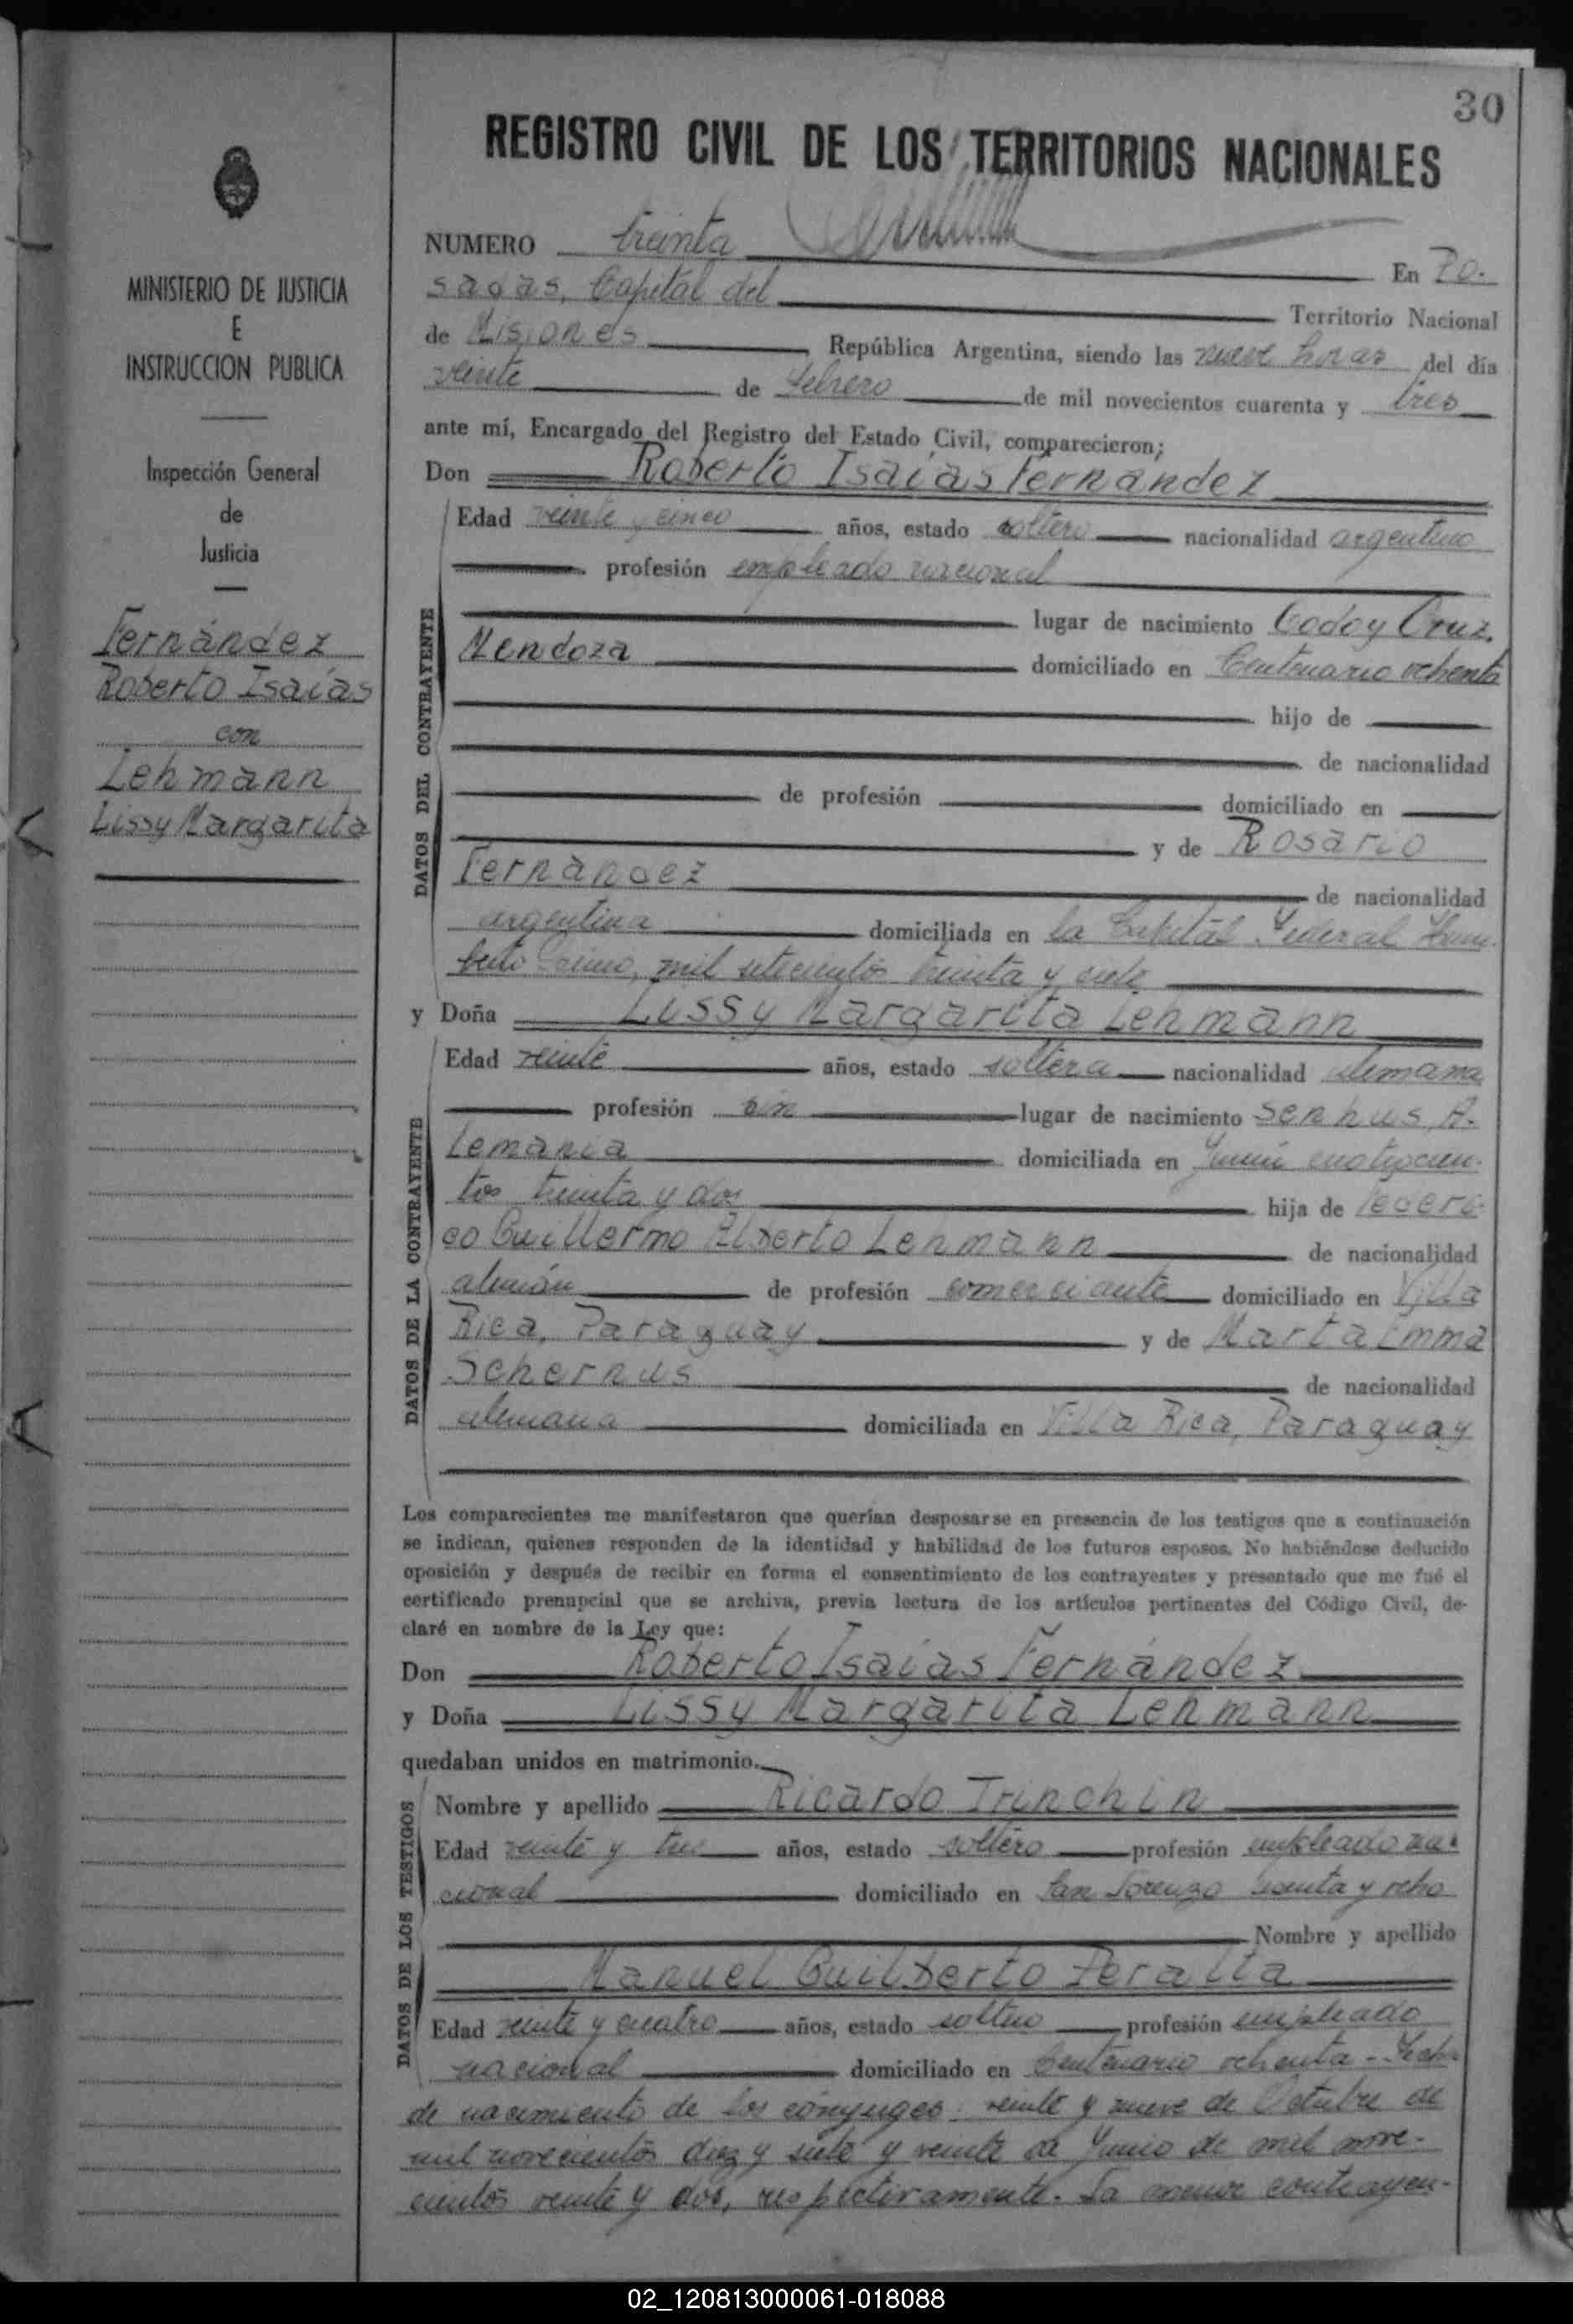 30
REGISTRO CIVIL DE LOS TERRITORIOS NACIONALES
MINISTERIO DE JUSTICIA
E
INSTRUCCION PUBLICA
Inspección General
de
Justicia
Fernández
Roberto Isaías
con
Lehmann
Lissy Margarita
NUMERO treinta En Po-
sadas, Capital del Territorio Nacional
de Misiones República Argentina, siendo las nueve horas del día
veinte de Febrero de mil novecientos cuarenta y tres
ante mí, Encargado del Registro del Estado Civil, comparecieron;
Don Roberto Isaías Fernández
DATOS DEL CONTRAYENTE
Edad veinte y cinco años, estado soltero nacionalidad argentino
profesión empleado nacional
lugar de nacimiento Godoy Cruz,
Mendoza domiciliado en Centenario ochenta
hijo de
de nacionalidad
de profesión domiciliado en
y de Rosario
Fernández de nacionalidad
argentina domiciliada en la Capital Federal Hum-
berto Primo, mil setecientos treinta y siete
y Doña Lissy Margarita Lehmann
DATOS DE LA CONTRAYENTE
Edad veinte años, estado soltera nacionalidad alemana
profesión sin lugar de nacimiento Senhus, A-
lemania domiciliada en Junín cuatrocien-
tos treinta y dos hija de Federi-
co Guillermo Alberto Lehmann de nacionalidad
alemán de profesión comerciante domiciliado en Villa
Rica, Paraguay y de Marta Emma
Schernus de nacionalidad
alemana domiciliada en Villa Rica, Paraguay
Los comparecientes me manifestaron que querían desposarse en presencia de los testigos que a continuación
se indican, quienes responden de la identidad y habilidad de los futuros esposos. No habiéndose deducido
oposición y después de recibir en forma el consentimiento de los contrayentes y presentado que me fué el
certificado prenupcial que se archiva, previa lectura de los artículos pertinentes del Código Civil, de-
claré en nombre de la Ley que:
Don Roberto Isaías Fernández
y Doña Lissy Margarita Lehmann
quedaban unidos en matrimonio.
DATOS DE LOS TESTIGOS
Nombre y apellido Ricardo Trinchin
Edad veinte y tres años, estado soltero profesión empleado na-
cional domiciliado en San Lorenzo y ocho
Nombre y apellido
Manuel Guilberto Peralta
Edad veinte y cuatro años, estado soltero profesión empleado
nacional domiciliado en Centenario ochenta - Fecha
de nacimiento de los cónyuges: veinte y nueve de Octubre de
mil novecientos diez y siete y veinte de Junio de mil nove-
cientos veinte y dos, respectivamente. La menor contrayen-
02_120813000061-018088